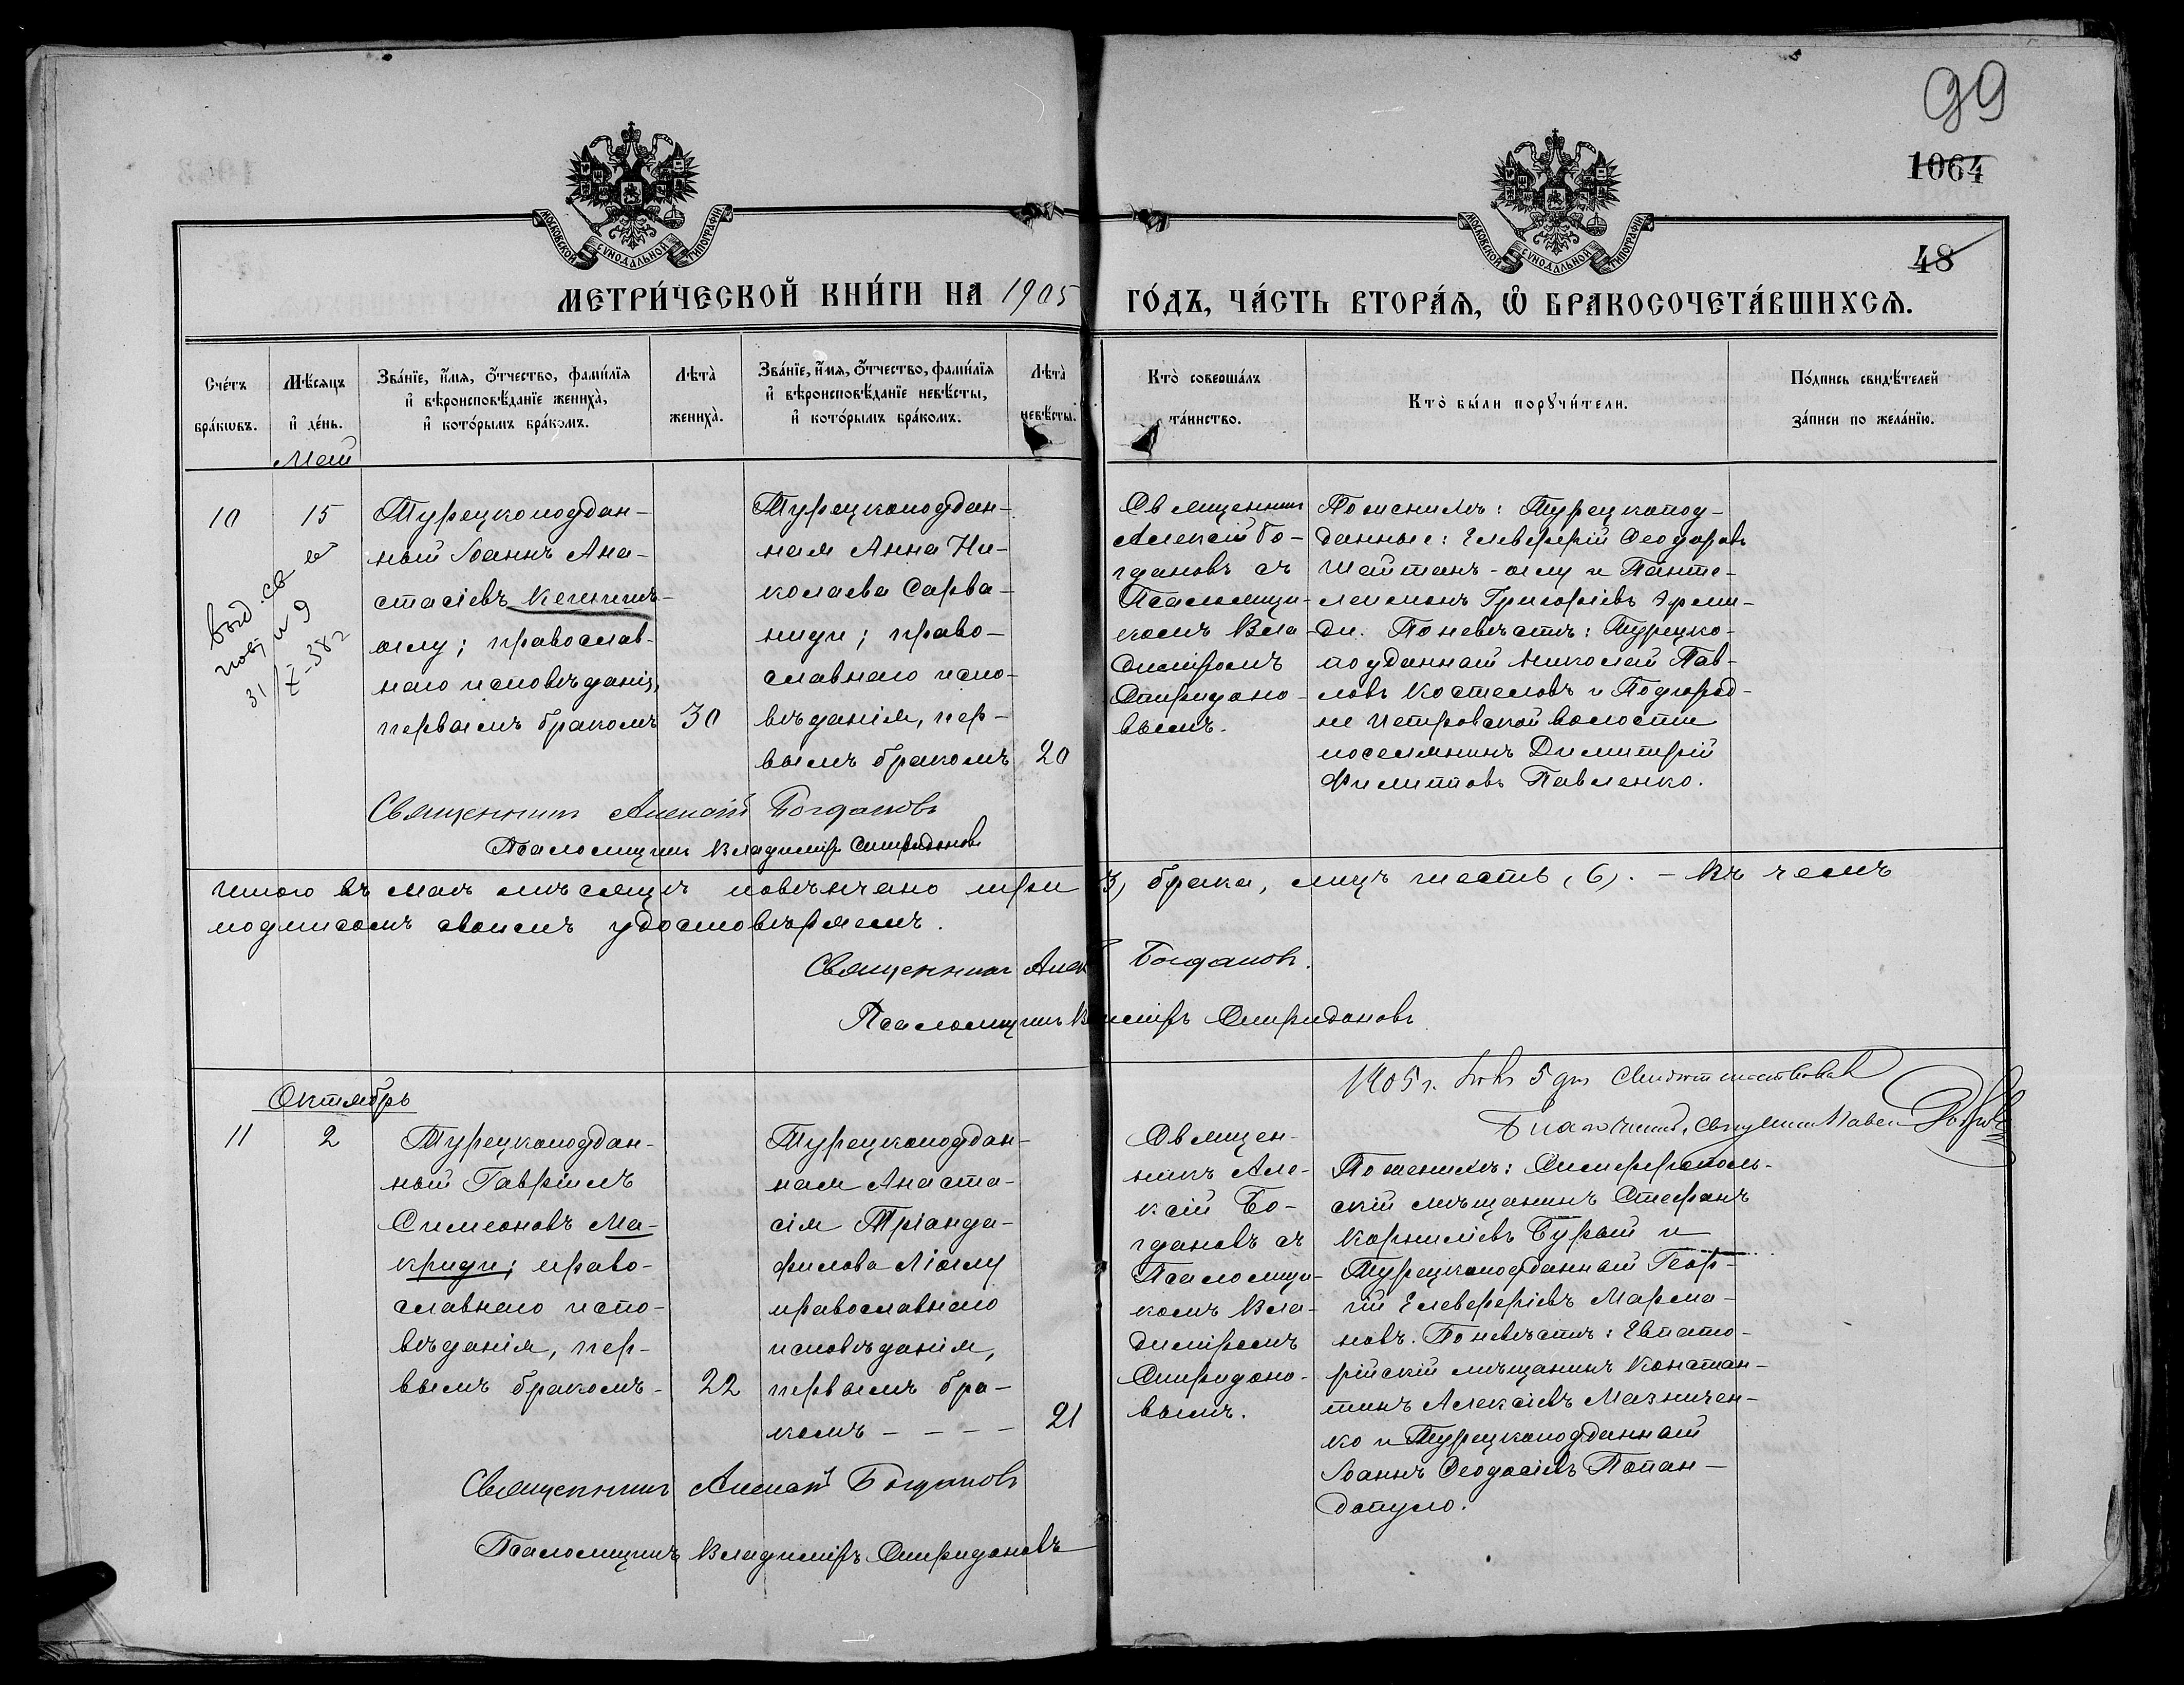 99
1064
48
МОСКОВСКОЙ СѴНОДАЛЬНОЙ ТИПОГРАФІИ
МОСКОВСКОЙ СѴНОДАЛЬНОЙ ТИПОГРАФІИ
МЕТРИ́ЧЕСКОЙ КНИ́ГИ НА 1905 ГО́ДЪ, ЧА́СТЬ ВТОРА́Ѧ, Ѽ БРАКОСОЧЕТА́ВШИХСѦ.
Сче́тъ бра́кωвъ.
Мѣ́сяцъ и҆ де́нь.
Зва́нїе, и҆́мѧ, ѻ҆́тчество, фами́лїѧ
и҆ вѣроисповѣ́данїе жениха̀,
и҆ кото́рымъ бра́комъ.
Лѣта̀ жениха̀.
Зва́нїе, и҆́мѧ, ѻ҆́тчество, фами́лїѧ
и҆ вѣроисповѣ́данїе невѣ́сты,
и҆ кото́рымъ бра́комъ.
Лѣта̀ невѣ́сты.
Кто̀ соверша́лъ та́инство.
Кто̀ бы́ли порꙋчи́тели.
По́дпись свидѣ́телей за́писи по жела́нїю.
Май
10
15
31/X-382
Турецкоподдан-
ный Іоаннъ Ана-
стасіевъ Кешишъ-
оглу; православ-
наго исповѣданія,
первымъ бракомъ
30
Турецкоподдан-
ная Анна Ни-
колаева Сарва-
ниди; право-
славнаго испо-
вѣданія, пер-
вымъ бракомъ
20
Священникъ
Алексій Бо-
гдановъ съ
Псаломщи-
комъ Вла-
диміромъ
Спиридоно-
вымъ.
По женихѣ: Турецкопод-
данные: Елевферій Ѳеодоровъ
Шайтанъ-оглу и Панте-
леимонъ Григоріевъ
По невѣстѣ: Турецко-
подданный Николай Пав-
ловъ Костеловъ и Подгород-
не Петровской волости
поселянинъ Димитрій
Филипповъ Павленко.
Священникъ Алексій Богдановъ
Псаломщикъ Владиміръ Спиридоновъ
Итого въ маѣ мѣсяцѣ повѣнчано три (3) брака, лицъ шесть (6). – Въ чемъ
подписомъ своимъ удостовѣряемъ.
Священникъ Алексій Богдановъ.
Псаломщикъ Владиміръ Спиридоновъ
1905 г. 5 дня свидѣтельствовалъ
Благочинный, Священникъ Павелъ
Октябрь
11
2
Турецкоподдан-
ный Гавріилъ
Симеоновъ Ма-
криди; право-
славнаго испо-
вѣданія, пер-
вымъ бракомъ-
22
Турецкоподдан-
ная Анаста-
сія Тріанда-
филова Ліоглу
православнаго
исповѣданія,
первымъ бра-
комъ – – – –
21
Священ-
никъ Але-
ксій Бо-
гдановъ съ
Псаломщи-
комъ Вла-
диміромъ
Спиридоно-
вымъ.
По женихѣ: Симферополь-
скій мѣщанинъ Стефанъ
Корниліевъ Бурый и
Турецкоподданный Геор-
гій Елевферіевъ Марма-
новъ. По невѣстѣ: Евпато-
рійскій мѣщанинъ Констан-
тинъ Алексіевъ Мазничен-
ко и Турецкоподданный
Іоаннъ Ѳеодосіевъ Папан-
допуло.
Священникъ Алексій Богдановъ
Псаломщикъ Владиміръ Спиридоновъ